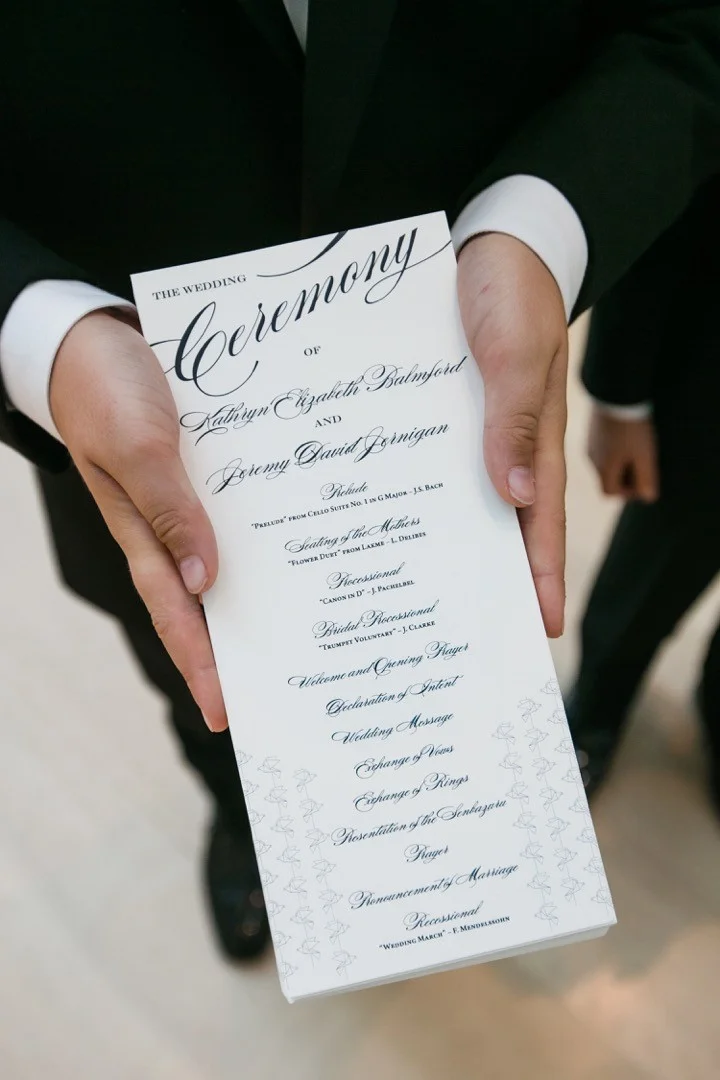 THE WEDDING
Ceremony
OF
Kathryn Elizabeth Balmford
AND
Jeremy David Jernigan
Prelude
"Prelude" from Cello Suite No. 1 in G Major – J.S. Bach
Seating of the Mothers
"Flower Duet" from Lakme – L. Delibes
Processional
"Canon in D" – J. Pachelbel
Bridal Processional
"Trumpet Voluntary" – J. Clarke
Welcome and Opening Prayer
Declaration of Intent
Wedding Message
Exchange of Vows
Exchange of Rings
Presentation of the Senkazuru
Prayer
Pronouncement of Marriage
Recessional
"Wedding March" – F. Mendelssohn